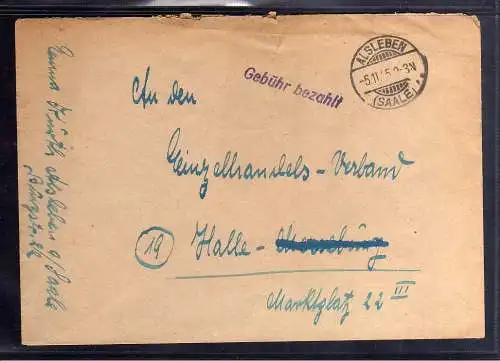 ALSLEBEN
-5.11.45.2-3N
(SAALE)
Gebühr bezahlt
An den
Einzelhandels-Verband
(19) Halle-Merseburg
Marktplatz 22 III
Alsleben a/Saale